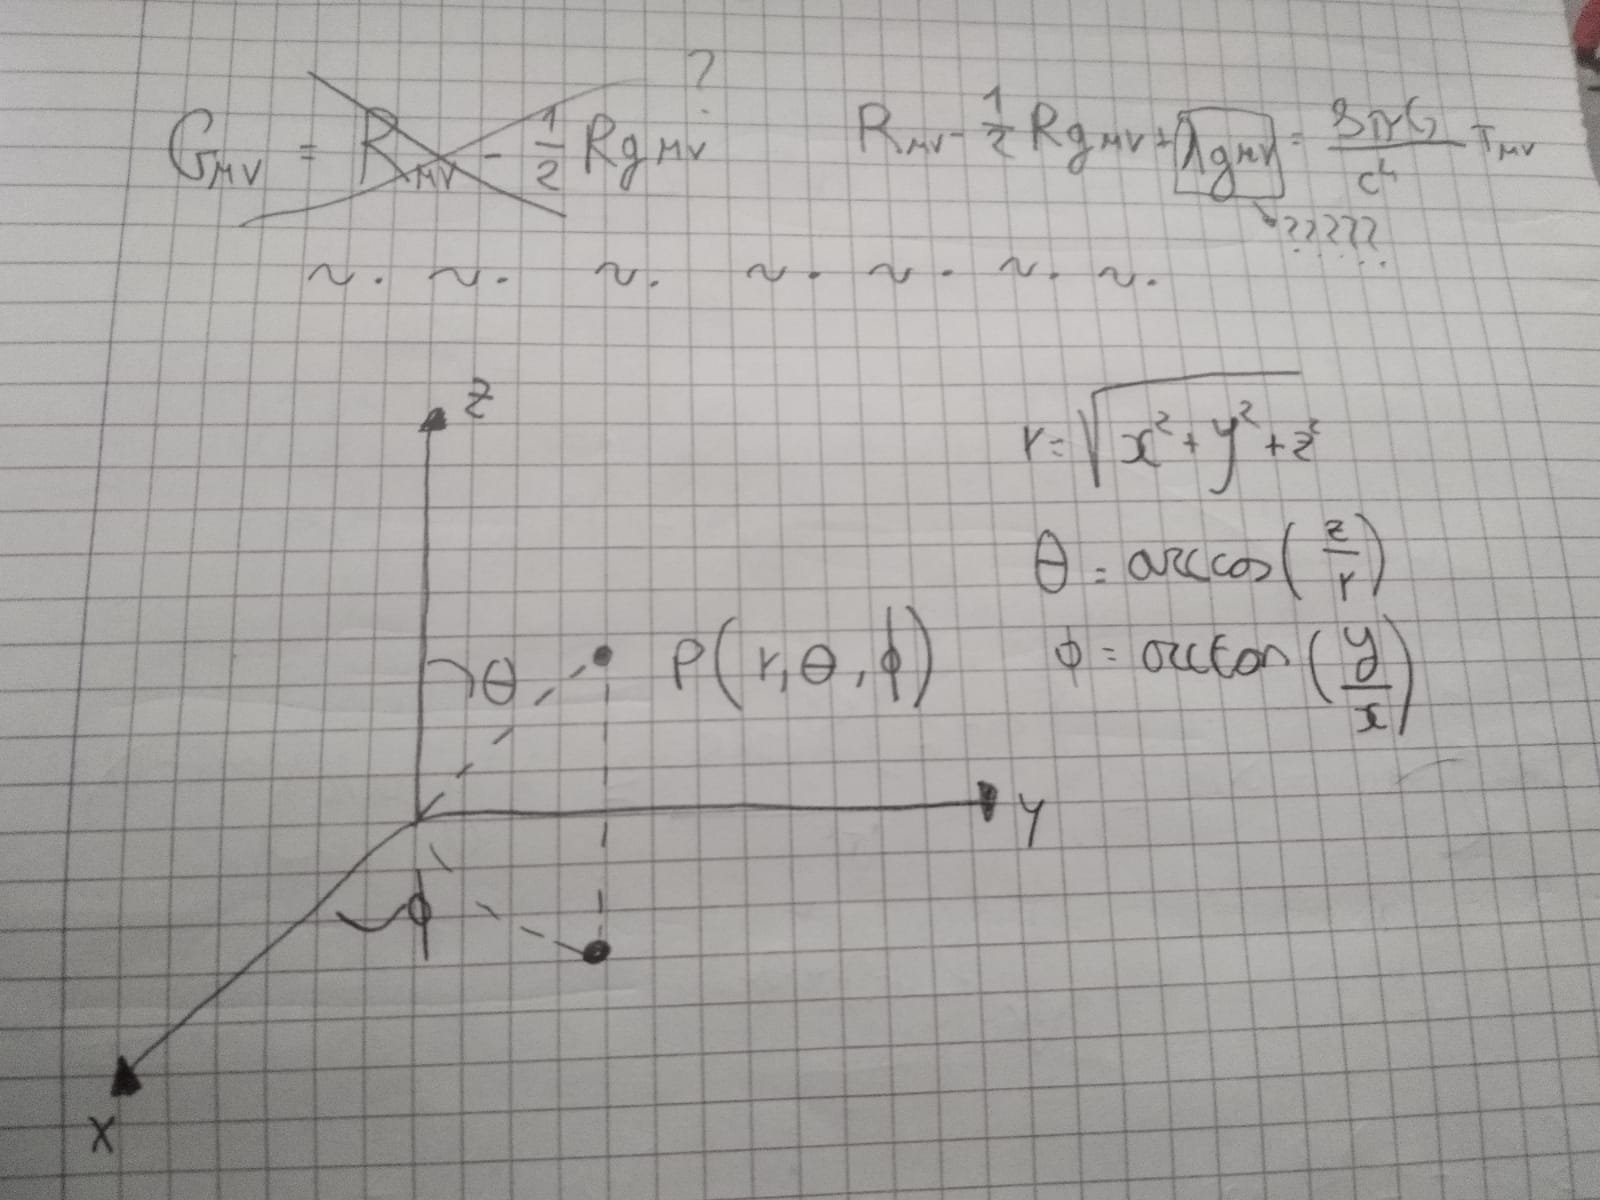 G_μν = R_μν - 1/2 Rg_μν ? R_μν - 1/2 Rg_μν + λg_μν = 8πG/c⁴ T_μν
?????
~. ~. ~. ~. ~. ~. ~.
z
r = √x²+y²+z²
θ = arccos(z/r)
θ P(r,θ,ϕ) ϕ = arctan(y/x)
y
ϕ
x